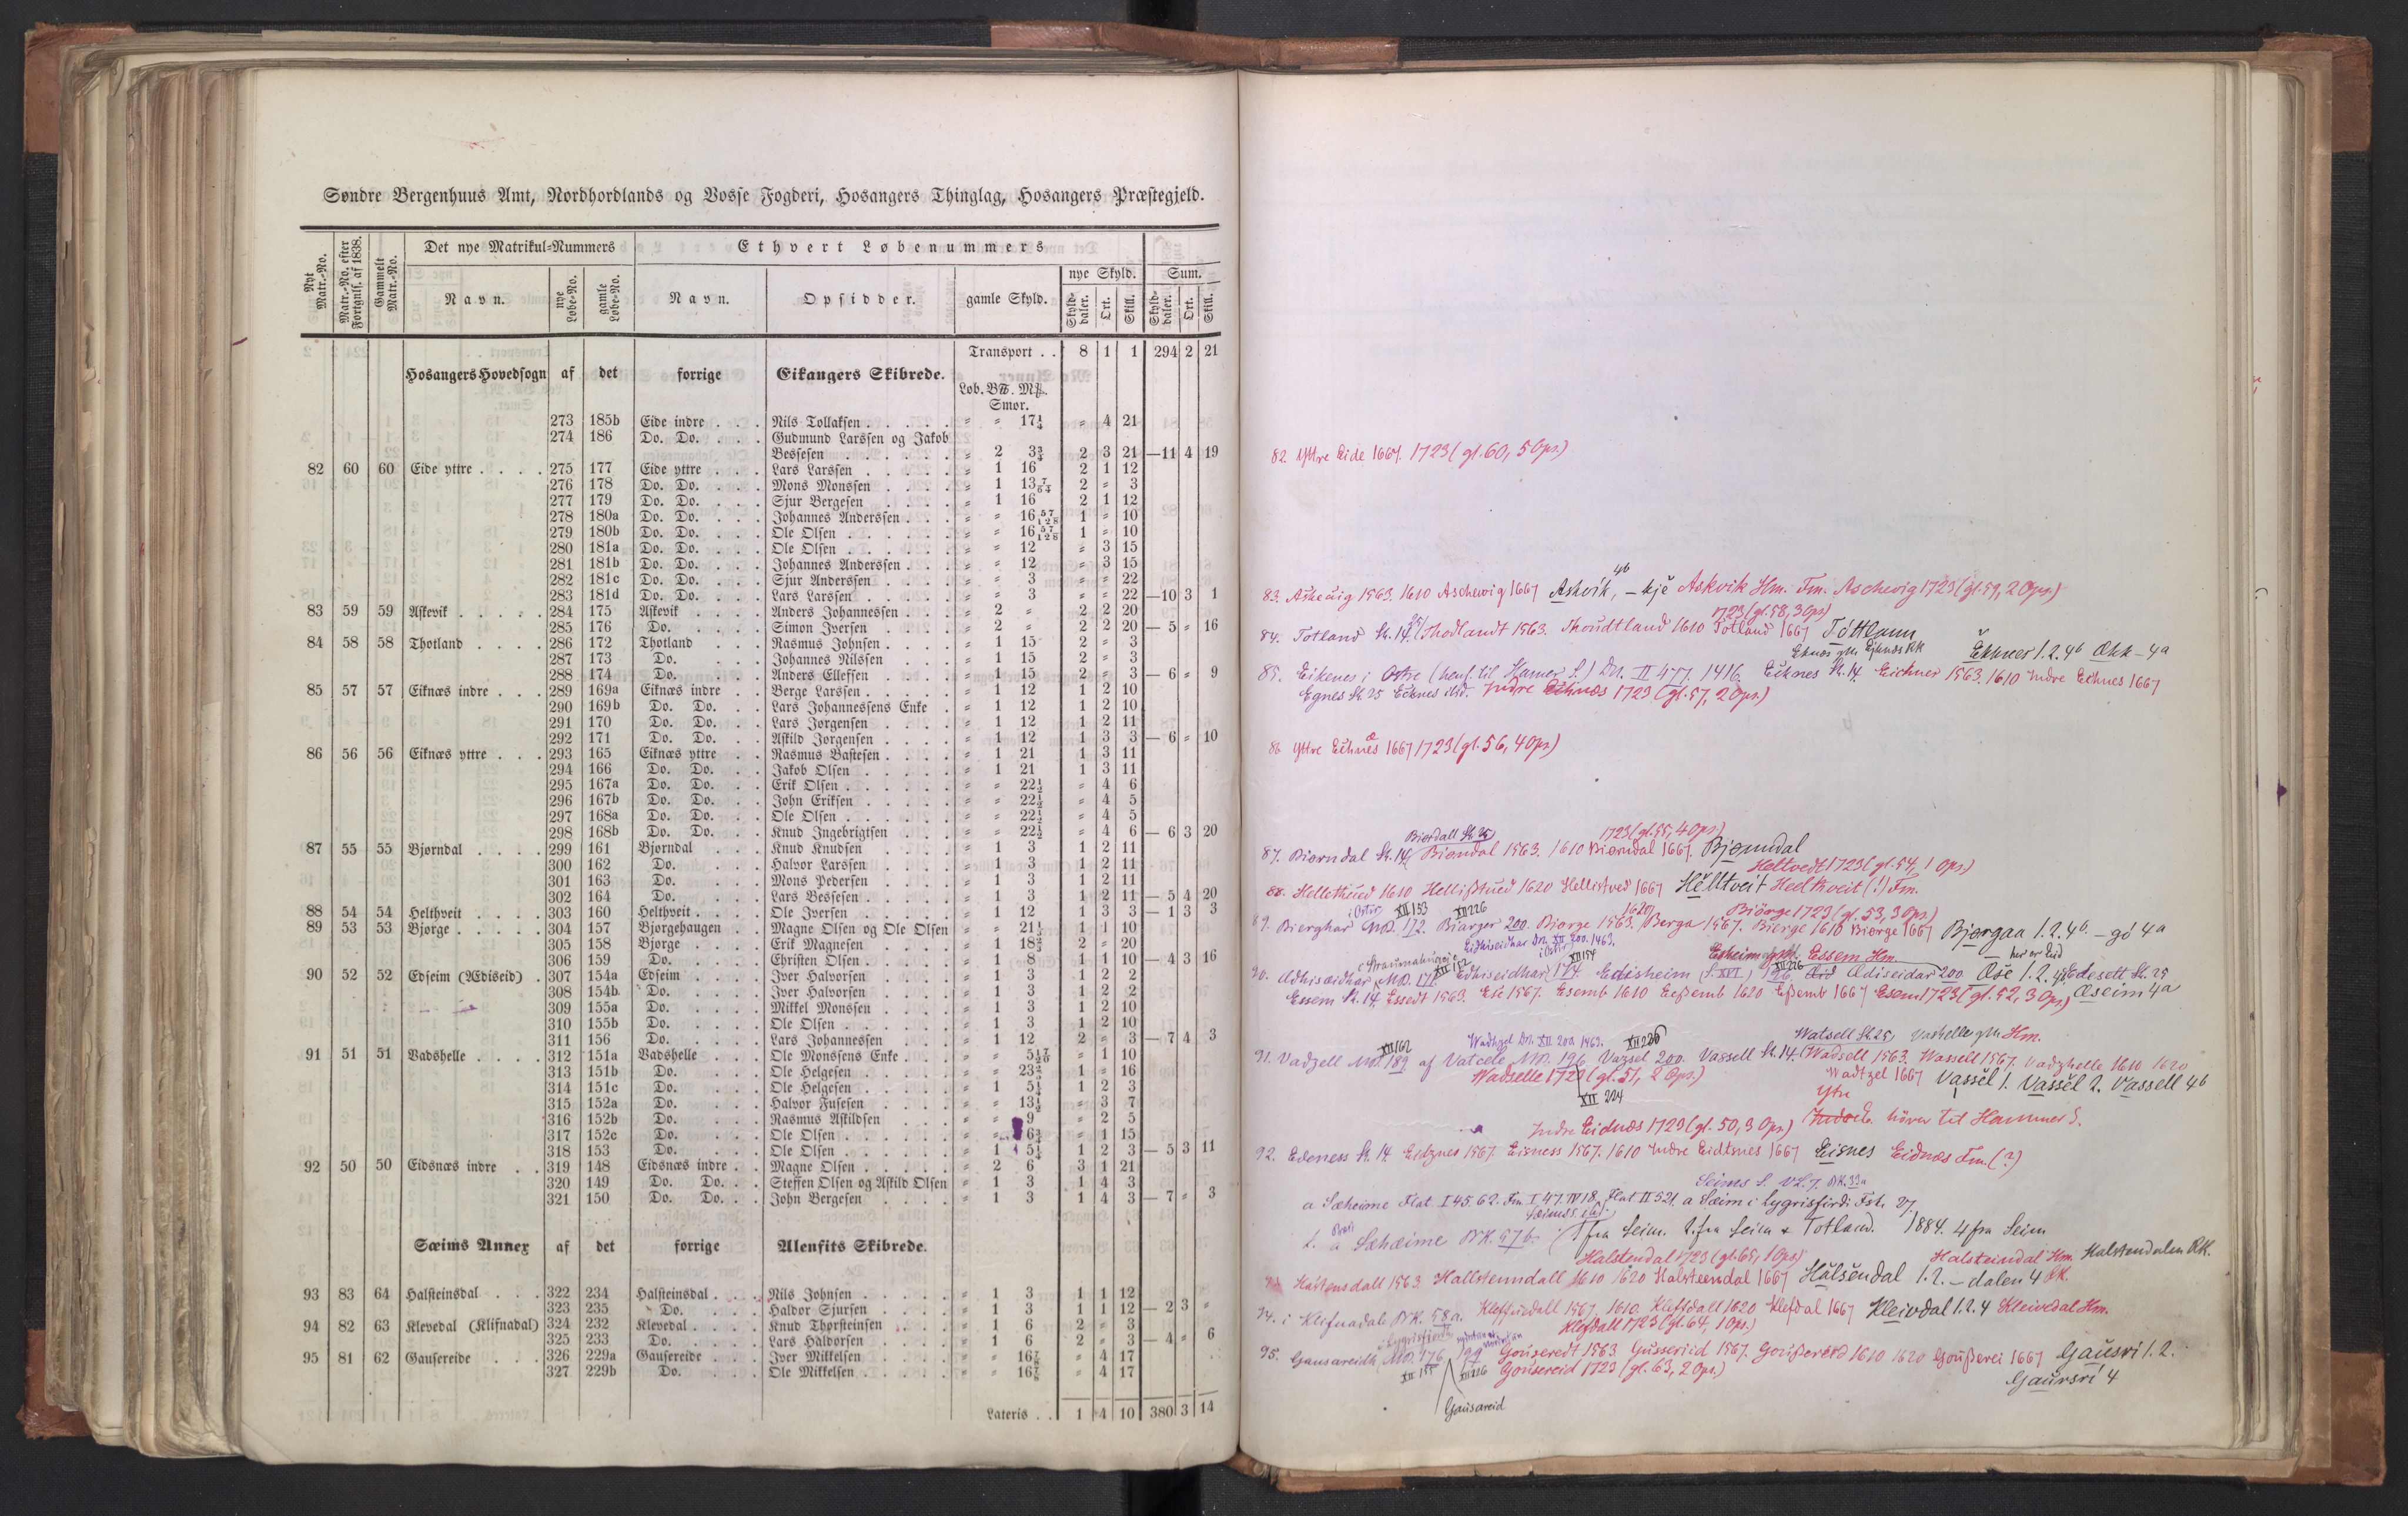 Søndre Bergenhuus Amt, Nordhordlands og Vosse Fogderi, Hosangers Thinglag, Hosangers Præstegjeld.
Nyt Matr.-No. | Matr.-No. efter Fortgnls. af 1838. | Gammelt Matr.-No. | Det nye Matrikul-Nummers | Ethvert Løbenummers
Navn. | nye Løbe-No. | gamle Løbe-No. | Navn. | Opsidder. | gamle Skyld. | nye Skyld. | Sum.
Skylddaler. | Ort. | Skill. | Skylddaler. | Ort. | Skill.
Transport . . 8 1 1 294 2 21
Hosangers Hovedsogn af det forrige Eikangers Skibrede.
Løb. B℔. M℔.
Smør.
273 185b Eide indre . . . Nils Tollaksen . . . . . " " 17¼ " 4 21
274 186 Do. Do. . . . Gudmund Larssen og Jakob
Bessesen . . . . . . " 2 3¾ 2 3 21 —11 4 19
82 60 60 Eide yttre . . . . 275 177 Eide yttre . . . Lars Larssen . . . . . " 1 16 2 1 12
276 178 Do. Do. . . . Mons Monssen . . . . " 1 13 7/64 2 " 3
277 179 Do. Do. . . . Sjur Bergesen . . . . " 1 16 2 1 12
278 180a Do. Do. . . . Johannes Anderssen . . . " " 16 57/128 1 " 10
279 180b Do. Do. . . . Ole Olsen . . . . . . " " 16 57/128 1 " 10
280 181a Do. Do. . . . Ole Olsen . . . . . . " " 12 " 3 15
281 181b Do. Do. . . . Johannes Anderssen . . . " " 12 " 3 15
282 181c Do. Do. . . . Sjur Anderssen . . . . " " 3 " " 22
283 181d Do. Do. . . . Lars Larssen . . . . . " " 3 " " 22 —10 3 1
83 59 59 Askevik . . . . . 284 175 Askevik . . . . Anders Johannessen . . . " 2 " 2 2 20
285 176 Do. . . . . Simon Iversen . . . . " 2 " 2 2 20 — 5 " 16
84 58 58 Thotland . . . . 286 172 Thotland . . . Rasmus Johnsen . . . . " 1 15 2 " 3
287 173 Do. . . . Johannes Nilssen . . . " 1 15 2 " 3
288 174 Do. . . . Anders Ellefsen . . . . " 1 15 2 " 3 — 6 " 9
85 57 57 Eiknæs indre . . . 289 169a Eiknæs indre . . Berge Larssen . . . . . " 1 12 1 2 10
290 169b Do. Do. . . Lars Johannessens Enke . " 1 12 1 2 10
291 170 Do. Do. . . Lars Jørgensen . . . . " 1 12 1 2 11
292 171 Do. Do. . . Askild Jørgensen . . . . " 1 12 1 3 3 — 6 " 10
86 56 56 Eiknæs yttre . . . 293 165 Eiknæs yttre . . Rasmus Bastesen . . . . " 1 21 1 3 11
294 166 Do. Do. . . Jakob Olsen . . . . . " 1 21 1 3 11
295 167a Do. Do. . . Erik Olsen . . . . . . " " 22½ " 4 6
296 167b Do. Do. . . John Eriksen . . . . . " " 22½ " 4 5
297 168a Do. Do. . . Ole Olsen . . . . . . " " 22½ " 4 5
298 168b Do. Do. . . Knud Ingebrigtsen . . . " " 22½ " 4 6 — 6 3 20
87 55 55 Bjørndal . . . . 299 161 Bjørndal . . . Knud Knudsen . . . . " 1 3 1 2 11
300 162 Do. . . . Halvor Larssen . . . . " 1 3 1 2 11
301 163 Do. . . . Mons Pedersen . . . . " 1 3 1 2 11
302 164 Do. . . . Lars Bessesen . . . . . " 1 3 1 2 11 — 5 4 20
88 54 54 Helthveit . . . . 303 160 Helthveit . . . . Ole Iversen . . . . . " 1 12 1 3 3 — 1 3 3
89 53 53 Bjørge . . . . . 304 157 Bjørgehaugen . . Magne Olsen og Ole Olsen " " 21½ 1 1 10
305 158 Bjørge . . . . Erik Magnesen . . . . " 1 18¾ 2 " 20
306 159 Do. . . . . Christen Olsen . . . . . " 1 8 1 1 10 — 4 3 16
90 52 52 Edseim (Ædiseid) . 307 154a Edseim . . . . Iver Halvorsen . . . . " 1 3 1 2 2
308 154b Do. . . . . Iver Halvorsen . . . . " 1 3 1 2 2
309 155a Do. . . . . Mikkel Monssen . . . . " 1 3 1 2 10
310 155b Do. . . . . Ole Olsen . . . . . . " 1 3 1 2 10
311 156 Do. . . . . Lars Johannessen . . . " 1 12 2 " 3 — 7 4 3
91 51 51 Vadshelle . . . . 312 151a Vadshelle . . . Ole Monssens Enke . . . " " 5 17/20 " 1 10
313 151b Do. . . . Ole Helgesen . . . . . " " 23⅖ 1 " 16
314 151c Do. . . . Ole Helgesen . . . . . " 1 5¼ 1 2 3
315 152a Do. . . . Halvor Fusesen . . . . " " 13½ " 3 7
316 152b Do. . . . Rasmus Askildsen . . . " " 9 " 2 5
317 152c Do. . . . Ole Olsen . . . . . . " " 6¾ " 1 15
318 153 Do. . . . Ole Olsen . . . . . . " 1 5¼ 1 2 3 — 5 3 11
92 50 50 Eidsnæs indre . . 319 148 Eidsnæs indre . . Magne Olsen . . . . . " 2 6 3 1 21
320 149 Do. Do. . . Steffen Olsen og Askild Olsen " 1 3 1 4 3
321 150 Do. Do. . . John Bergesen . . . . " 1 3 1 4 3 — 7 " 3
Sæims Annex af det forrige Alenfits Skibrede.
93 83 64 Halsteinsdal . . . 322 234 Halsteinsdal . . . Nils Johnsen . . . . . " 1 3 1 1 12
323 235 Do. . . . Haldor Sjursen . . . . " 1 3 1 1 12 — 2 3 "
94 82 63 Klevedal (Klifnadal) 324 232 Klevedal . . . . Knud Thorsteinsen . . . " 1 6 2 " 3
325 233 Do. . . . . Lars Haldorsen . . . . " 1 6 2 " 3 — 4 " 6
95 81 62 Gausereide . . . 326 229a Gausereide . . . Iver Mikkelsen . . . . " " 16⅞ " 4 17
327 229b Do. . . . Ole Mikkelsen . . . . . " " 16⅞ " 4 17
Lateris . . 1 4 10 380 3 14
82. Yttre Eide 1667. 1723 (gl. 60, 5 Ops.)
4b
83. Askeuig 1563. 1610 Aschevig 1667 Askvik, – kjě Askvik Hm. Fm. Aschevig 1723 (gl. 59, 2 Ops.)
1723 (gl. 58, 3 Ops)
84. Totland St. 14. Thodlandt 1563. Thoudtland 1610 Totland 1667 Tóttlann
Eknæs gm Ejknæs RK Ěkknes 1. 2. 4b Ækk – 4a
85. Eikenes i Ostre (henf. til Hamer S.) Dn. II 477. 1416. Eiknes St. 14. Eichner 1563. 1610 Indre Echnes 1667
Egnes St. 25 Ecknes ibd. Indre Echnæs 1723 (gl. 57, 2 Ops.)
86 Yttre Echnes 1667 1723 (gl. 56, 4 Ops.)
Biordall St. 25 1723 (gl. 55, 4 Ops)
87. Biorndal St. 14 Biondal 1563. 1610 Biorndal 1667. Bjønndal
Heltvedt 1723 (gl. 54, 1 Ops.)
88. Hellethued 1610 Hellistued 1620 Hellistved 1667 Hělltveit Heelthveit (!) Fm.
i Ostir XII 153 XII 226 1620 Biörge 1723 (gl. 53, 3 Ops.)
89. Bierghar MD. 172. Biarger 200. Biorge 1563. Berga 1567. Bierge 1610 Biorge 1667 Bjørgaa 1. 2. 4b. – gó 4a
Dn. XII 200. 1463. XII 154 Essem Hm. her er Eid
90. Edisheim (S. XVI.) 196 Ædiseidar 200 Æse 1. 2. 4b Edesett St. 25
Essem St. 14. Essedt 1563. Ese 1567. Esemb 1610 Eessemb 1620 Essemb 1667 Esem 1723 (gl. 52, 3 Ops) Æseim 4a
XII 162 Dn. XII 200. 1463. XII 226 Watsell St. 25, Vashelle gm Hm.
91. Vadzell MD. 189 af Vatcele MD. 196 Vazsel 200. Vassell St. 14. Wadsell 1563. Wassell 1567. Vadzhelle 1610 1620
Wadselle 1723 (gl. 51, 2 Ops.) Wadtzel 1667 Vassěl 1. Vassěl 2. Vassell 4b
XII 224 Ytre
Indre Eidnæs 1723 (gl. 50, 3 Ops) Indre E. hörer til Hammer S.
92. Edeness St. 14. Eidznes 1567. Eisness 1567. 1610 Indre Eidtsnes 1667 Eisnes Eidnæs Fm. (?)
Seims S. VL. 7. BK. 33a
a Sæheime Flat. I 45. 62. Fm I 47. IV 18. Flat II 521. a Sæim i Lygrisfirdi Fsk. 27.
a Sæheime BK. 57b. 1 fra Seim. 2. fra Seim & Totland. 1884. 4 fra Seim
Halstendal 1723 (gl. 65, 1 Ops) Halsteindal Hm. Halstendalen RK.
Hallstenndall 1610 1620 Halsteendal 1667 Hălsěndal 1. 2. – dalen 4 RK.
94. i Klifnadale BK. 58a. Kleffuedall 1567. 1610. Kleffdall 1620 Klefdal 1667 Kleivdal 1. 2. 4 Kleivedal Hm.
Klefdall 1723 (gl. 64, 1 Ops.)
95. Gausareidh MD. 176 199 Gouseredt 1563 Gusseriid 1567. Gousserrd 1610 1620 Gousserei 1667 Gaŭsri 1. 2.
XII 155 XII 226 Gousereid 1723 (gl. 63, 2 Ops.) Gaŭrsri 4
Gausareid